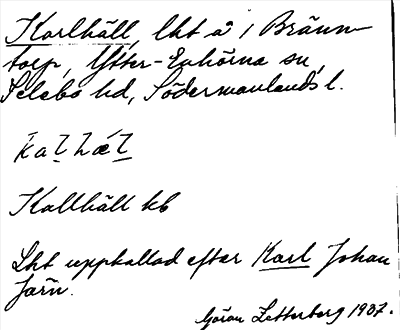 Karlhäll, lht å 1 Bränn-
torp, Ytter-Enhörna sn,
Selebo hd, Södermanlands l.
Kallhäll kb
Lht uppkallad efter Karl Johan
Järn.
Göran Zetterberg 1937.